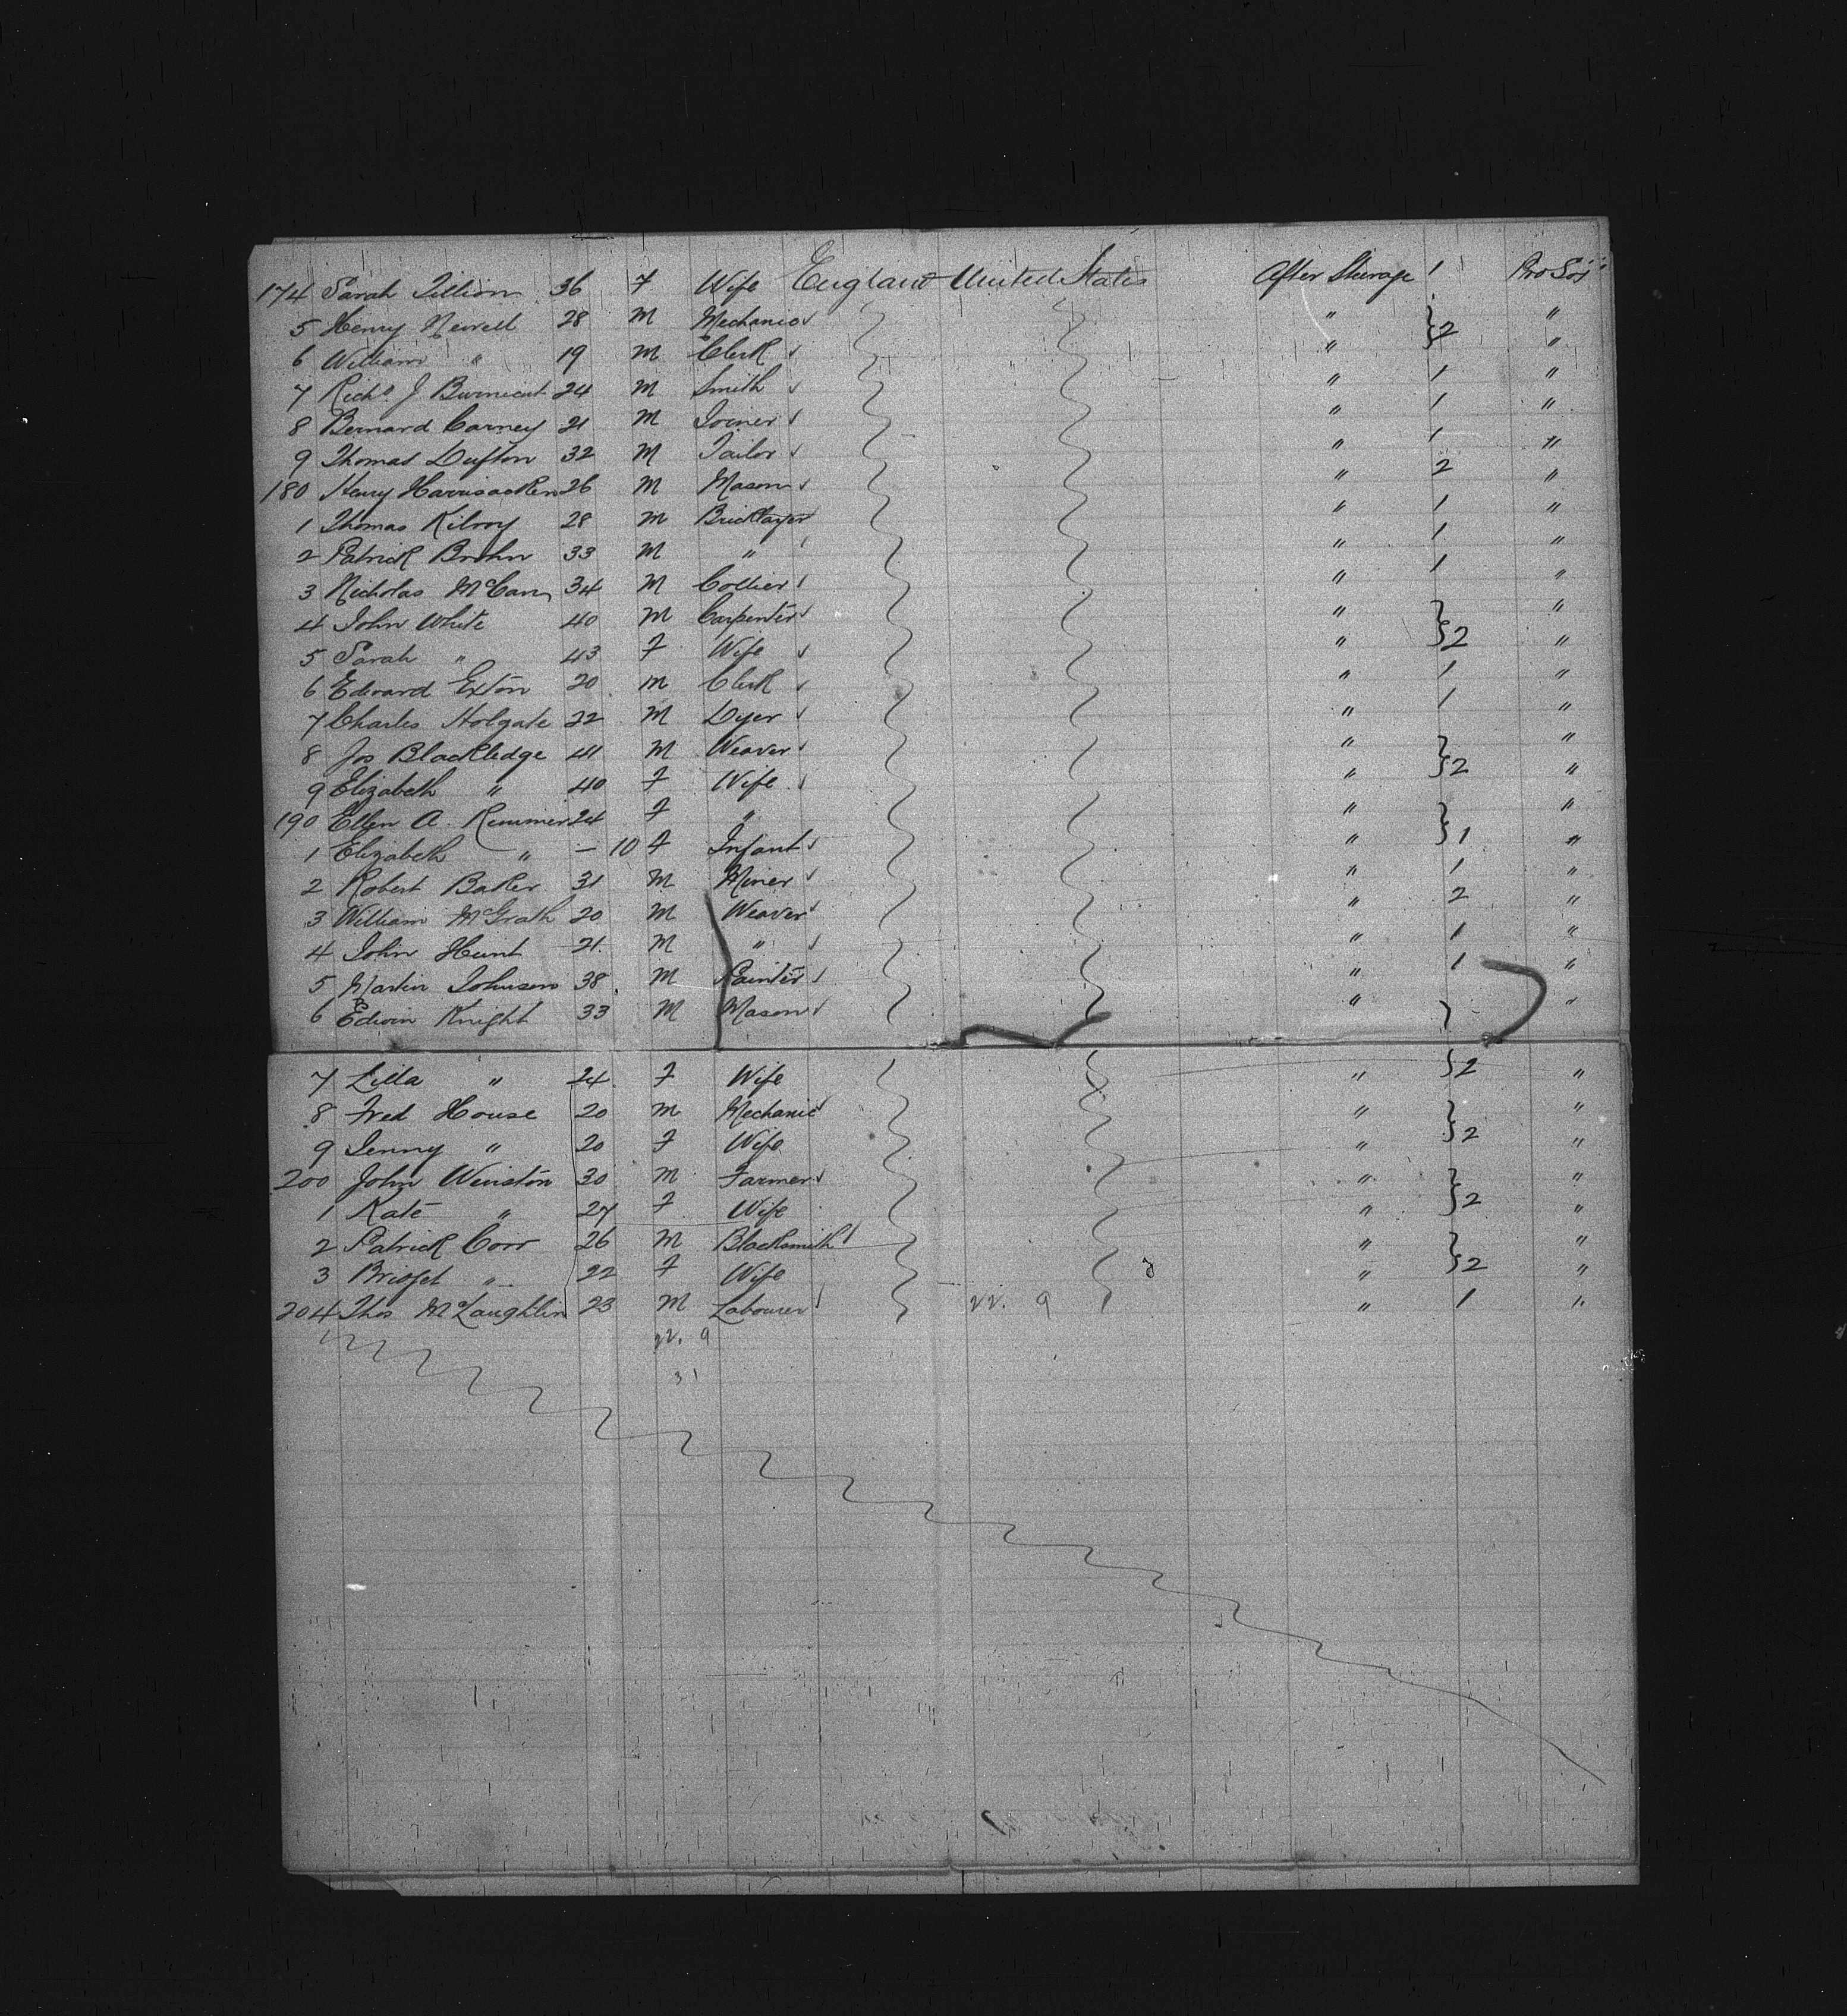 174 Sarah Tillion 36 F Wife England United States After Steerage 1 Pro Soj
5 Henry Newell 28 M Mechanic " } "
6 William " 19 M Clerk " }2 "
7 Richd J Burnicut 24 M Smith " 1 "
8 Bernard Carney 21 M Joiner " 1 "
9 Thomas Dufton 32 M Tailor " 1 "
180 Henry 26 M Mason " 2 "
1 Thomas Kilroy 28 M Bricklayer " 1 "
2 Patrick 33 M " " 1 "
3 Nicholas McCann 34 M Collier " 1 "
4 John White 40 M Carpenter " } "
5 Sarah " 43 F Wife " }2 "
6 Edward Exton 20 M Clerk " 1 "
7 Charles Holgate 22 M Dyer " 1 "
8 Jos Blackledge 41 M Weaver " } "
9 Elizabeth " 40 F Wife " }2 "
190 Ellen A. Rimmer 24 F " " } "
1 Elizabeth " — 10 F Infant " }1 "
2 Robert Baker 31 M Miner " 1 "
3 William McGrath 20 M Weaver " 2 "
4 John Hunt 21 M " " 1 "
5 Martin Johnson 38 M Painter " 1 "
6 Edwin Knight 33 M Mason " } "
7 Lilla " 24 F Wife " }2 "
8 Fred House 20 M Mechanic " } "
9 Jenny " 20 F Wife " }2 "
200 John Winston 30 M Farmer " } "
1 Kate " 27 F Wife " }2 "
2 Patrick Corr 26 M Blacksmith " } "
3 Bridget " 22 F Wife " }2 "
204 Thos McLaughlin 23 M Labourer 22. 9 " 1 "
22. 9
31